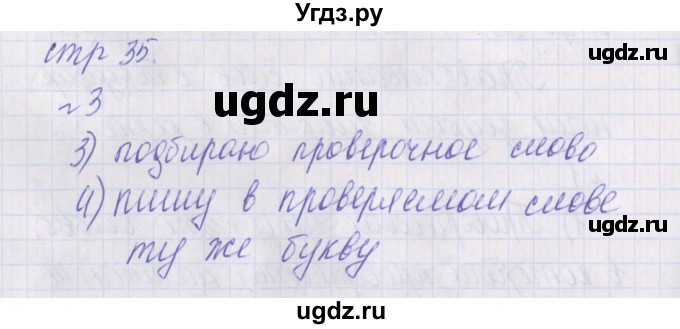 Угдз.ру
стр 35.
№3
ugdz.ru
3) подбираю проверочное слово
ugdz.ru
4) пишу в проверяемом слове
ту же букву
ugdz.ru
ugdz.ru